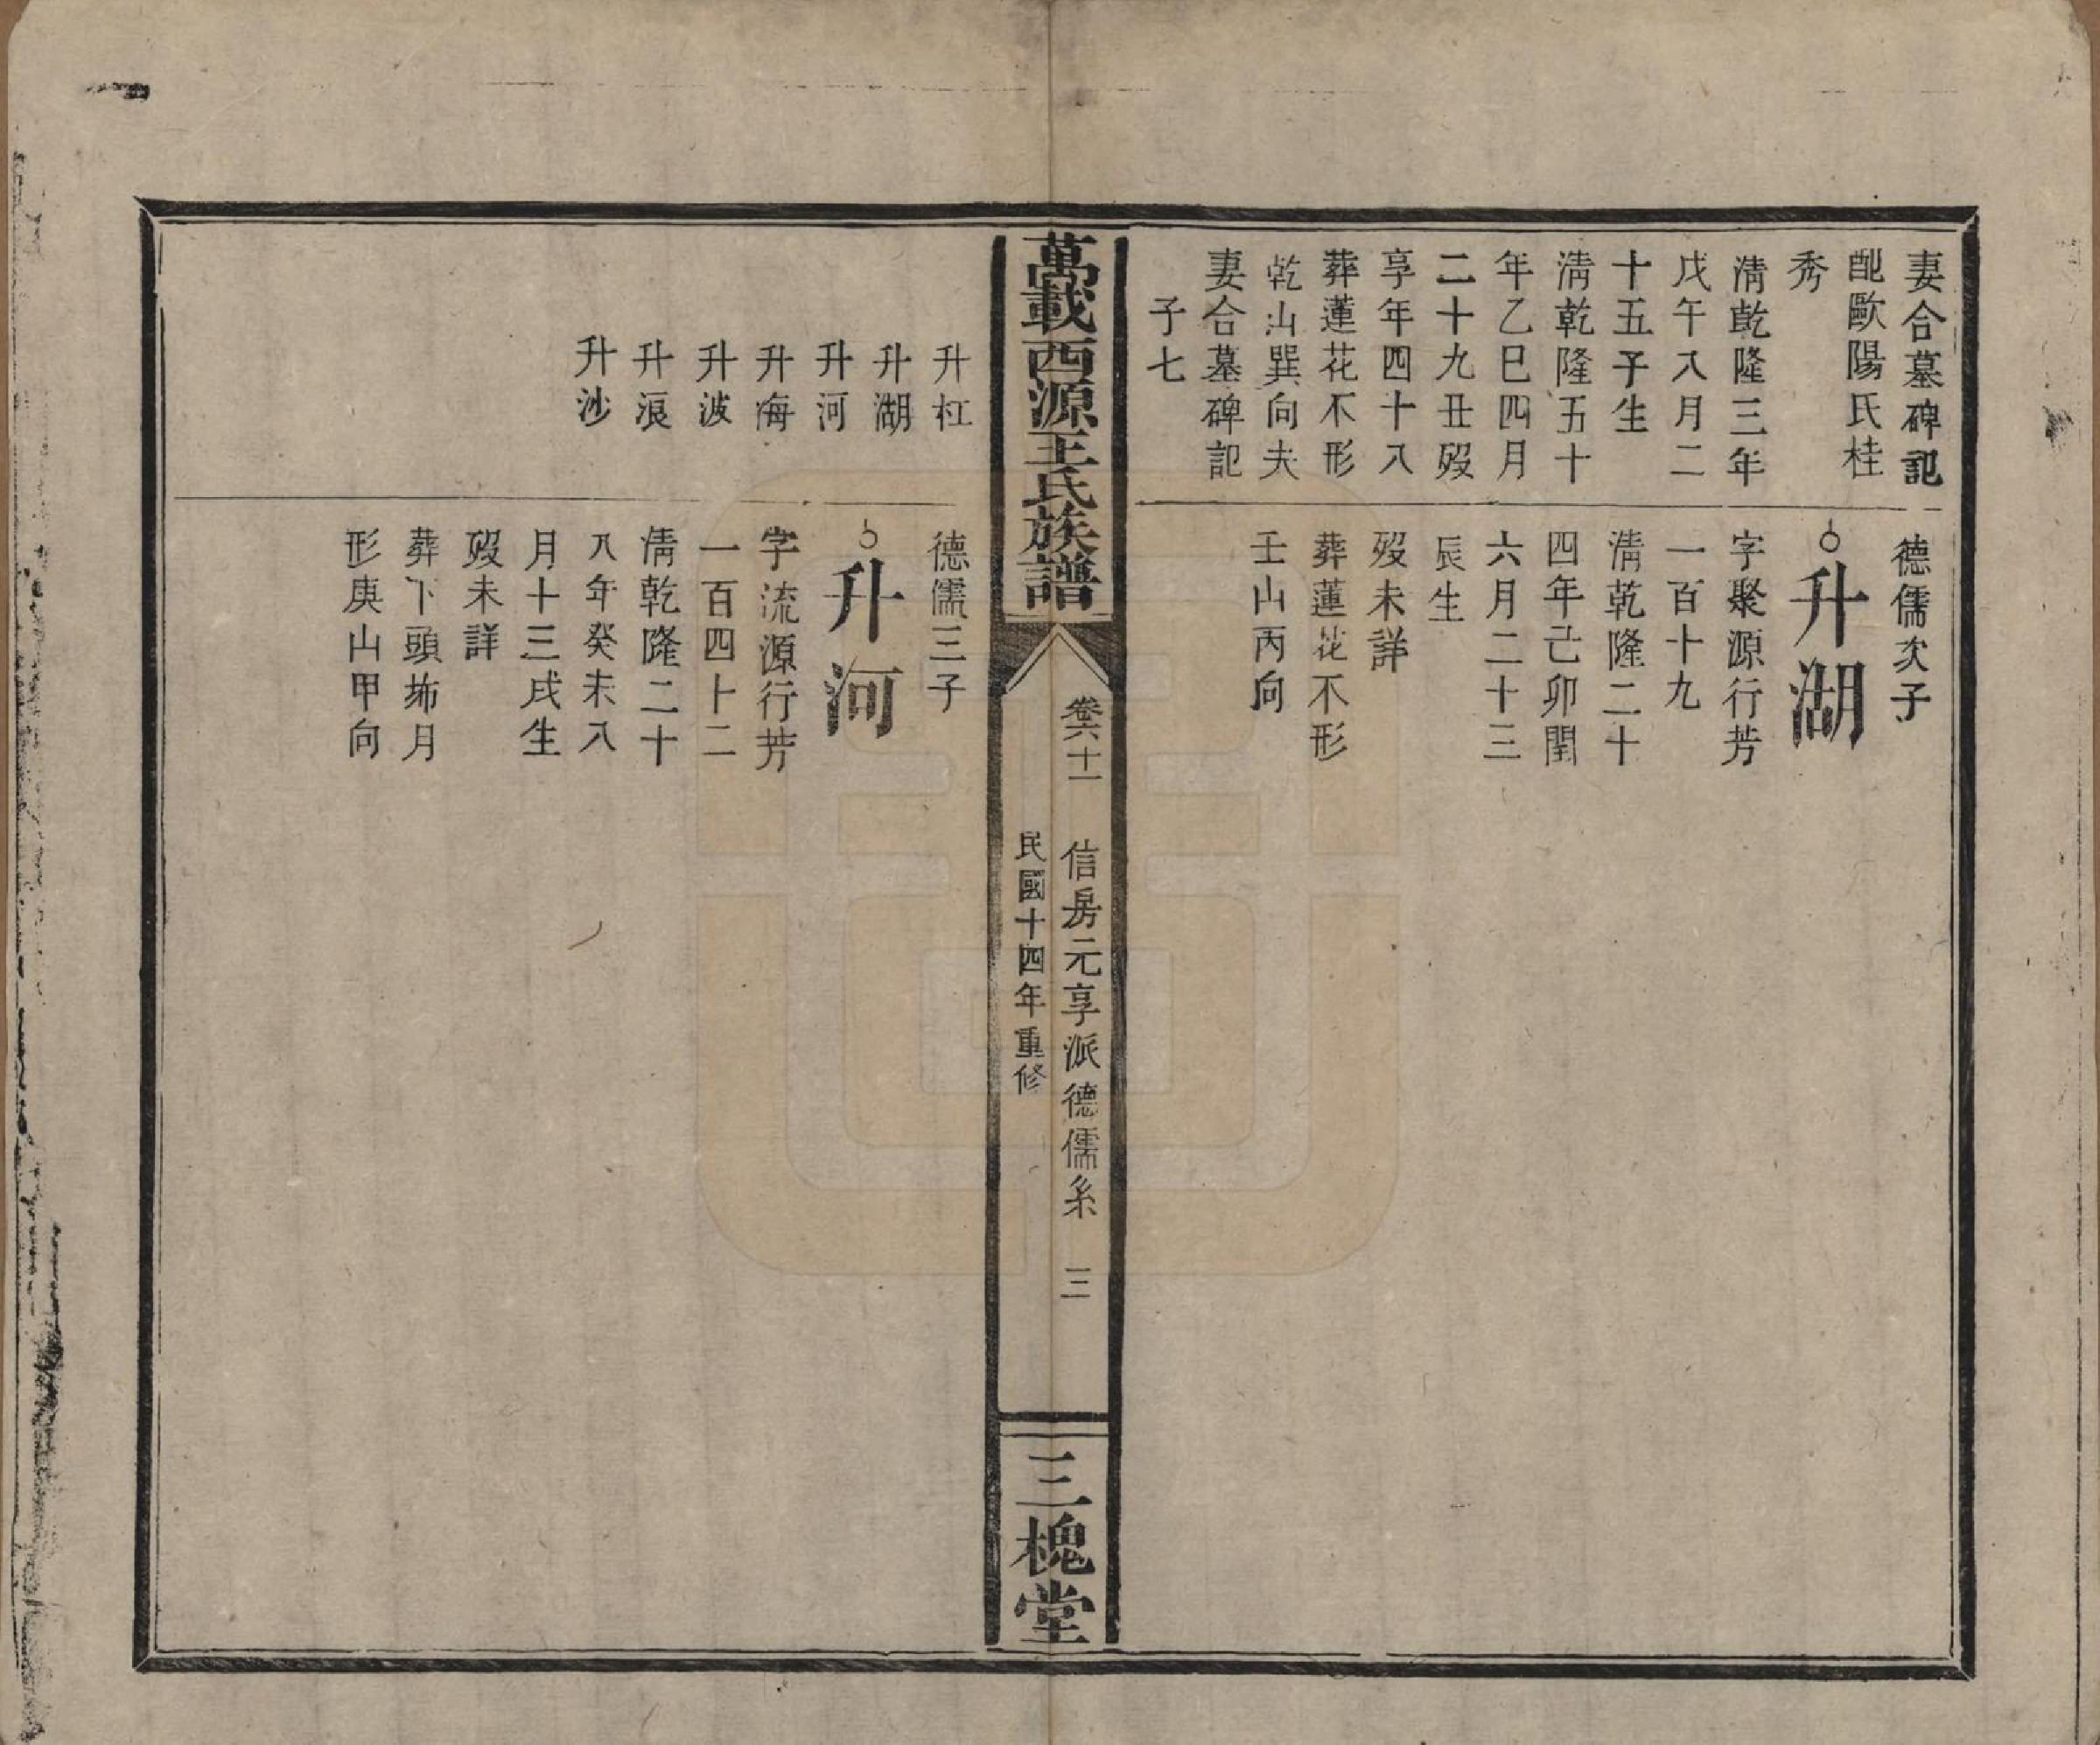 妻合墓碑記
配歐陽氏桂
秀
淸乾隆三年
戊午八月二
十五子生
淸乾隆五十
年乙巳四月
二十九丑歿
享年四十八
葬蓮花不形
乾山巽向夫
妻合墓碑記
子七
德儒次子
升湖
字聚源行芳
一百十九
淸乾隆二十
四年己卯閏
六月二十三
辰生
歿未詳
葬蓮花不形
壬山丙向
萬載西源王氏族譜
卷六十一
信房元享派德儒系
三
民國十四年重修
三槐堂
升杠
升湖
升河
升海
升波
升浪
升沙
德儒三子
升河
字流源行芳
一百四十二
淸乾隆二十
八年癸未八
月十三戌生
歿未詳
葬下頭㘵月
形庚山甲向